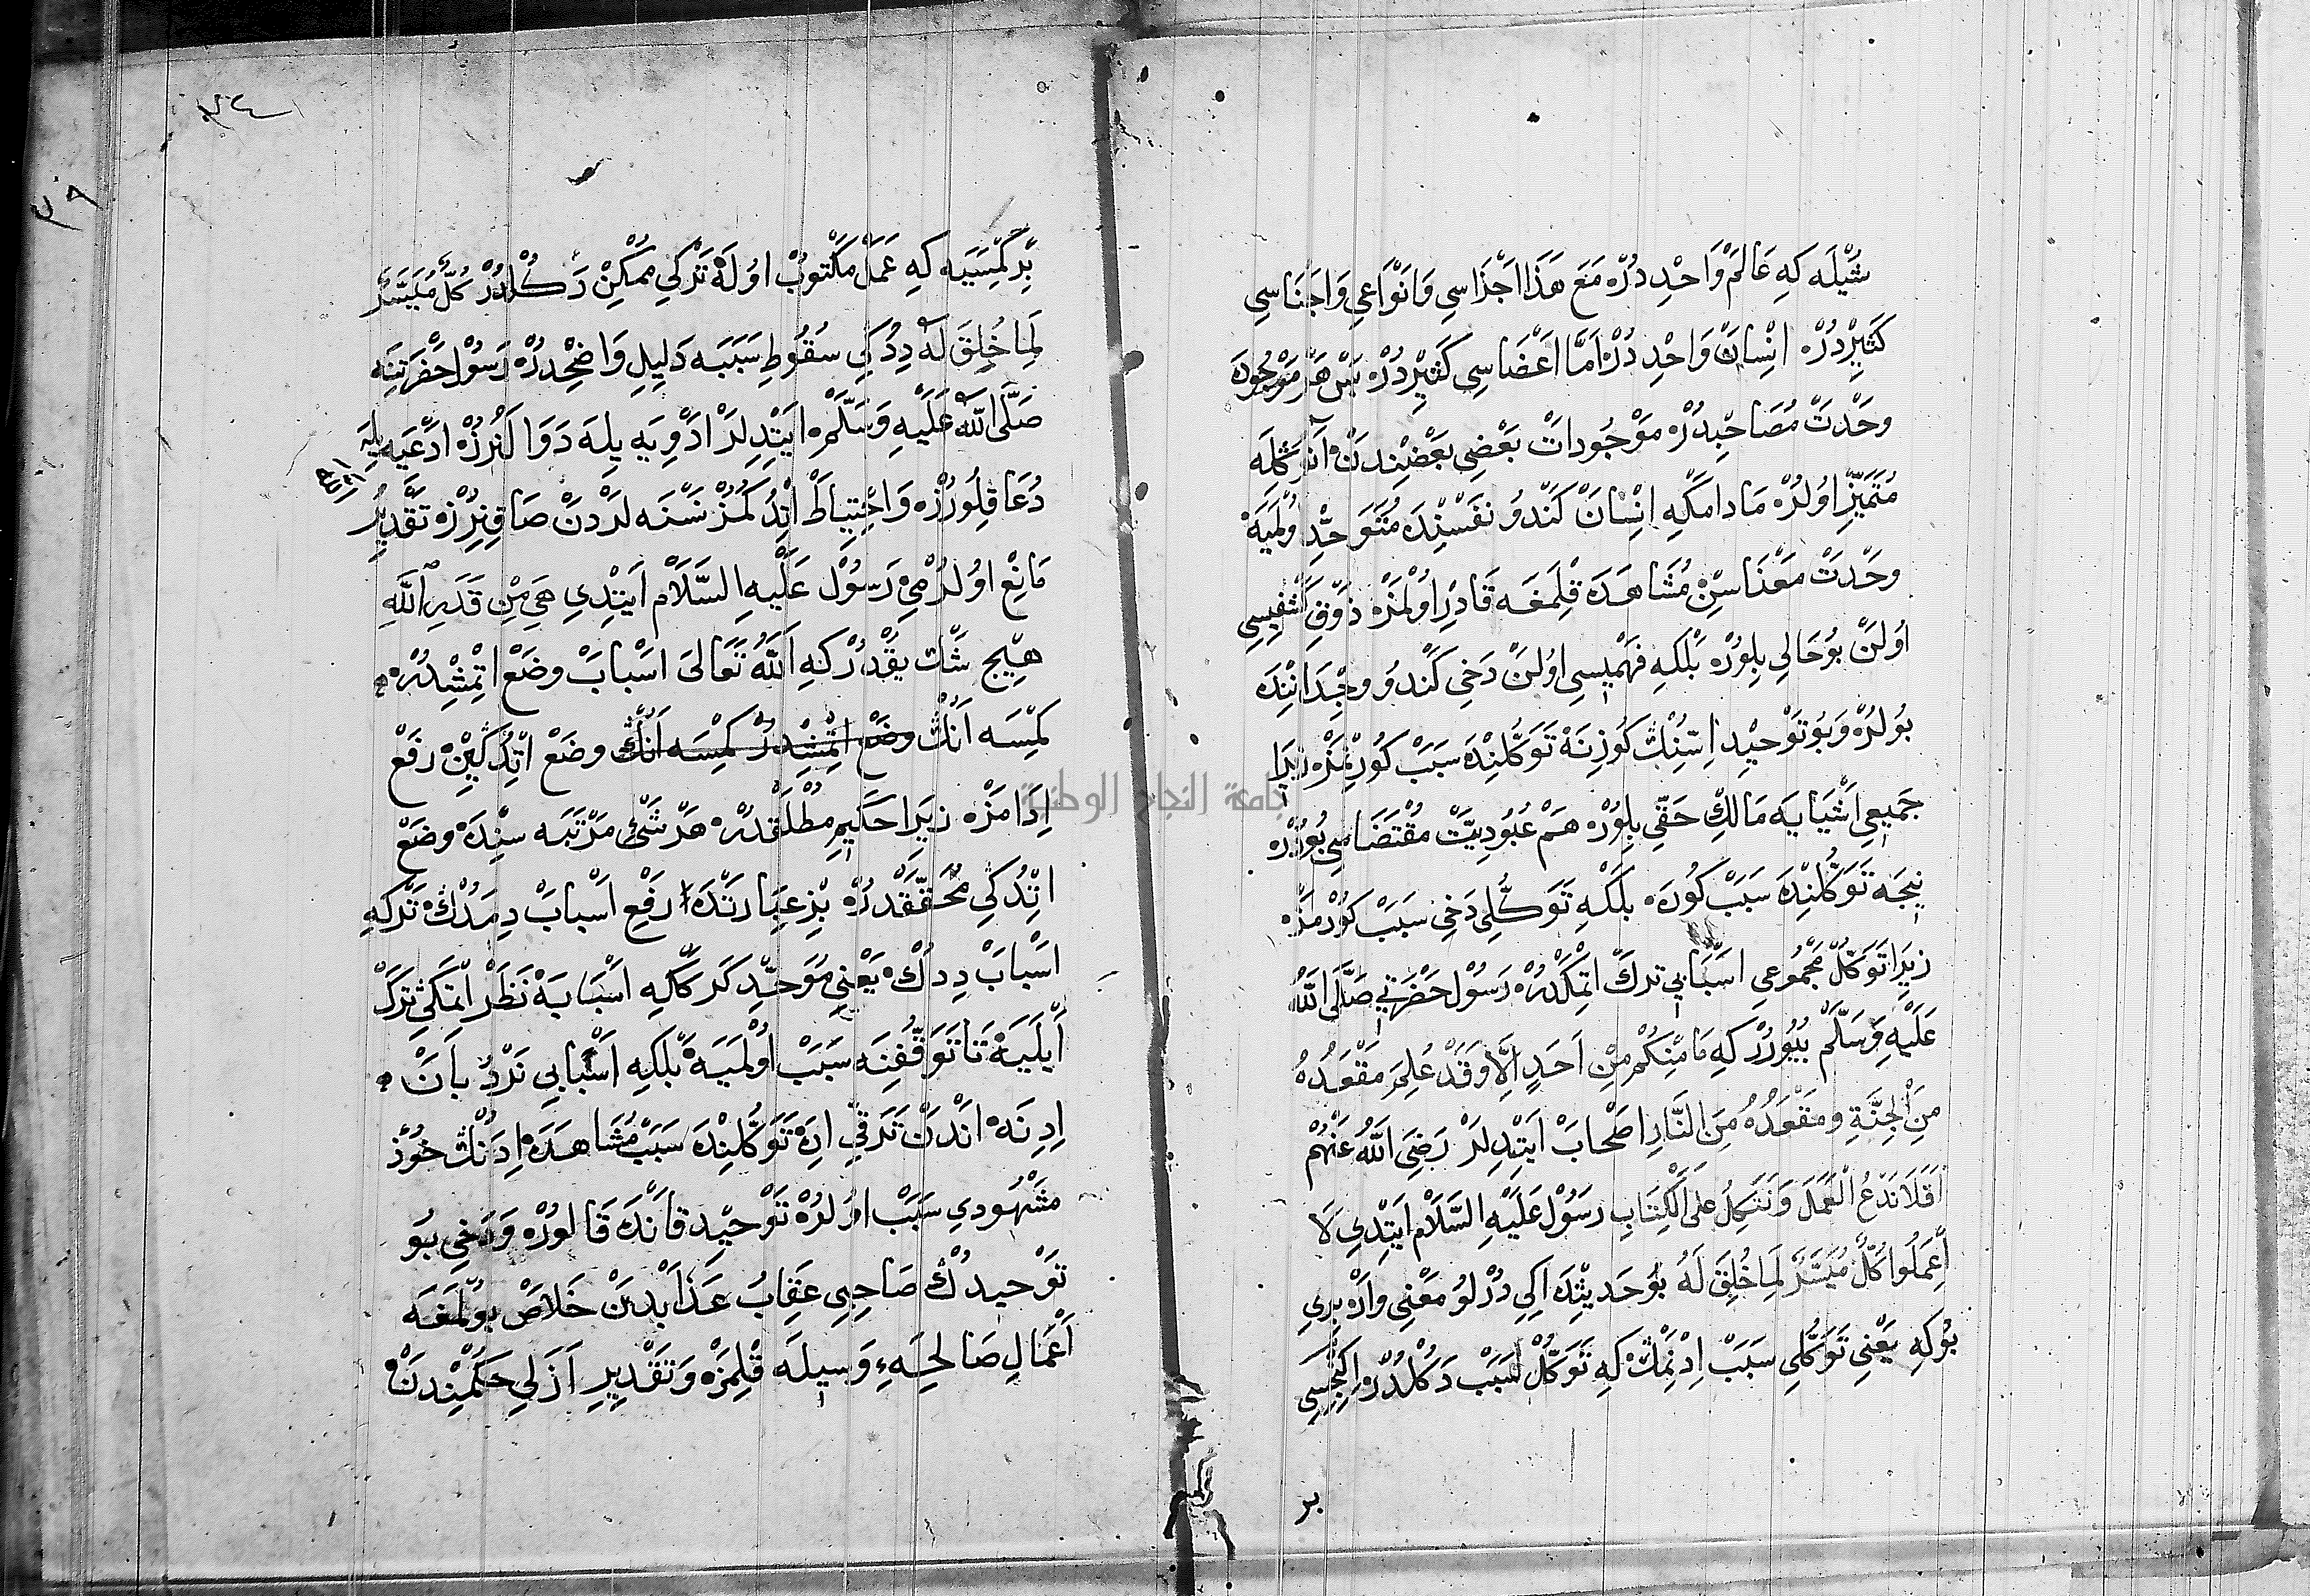 شُيْلَه كِه عَالَمْ وَاحْدِ دُرْه مَعَ هَذَا اَجْزَاسِي وَاَنْوَاعِي وَاَجْنَاسِي
كَثِيرْدُرْه اِنْسَانْ وَاحْدِ دُرْه اَمَّا اَعْضَاسِي كَثِيرْدُرْه بَسْ هَرْ مَوْجُودَه
وَحْدَتْ مُصَاحِبْدُرْه مَوْجُودَاتْ بَعْضِي بَعْضِنْدَنْ اَنُوكْلَه
مُتَمَيِّزْ اُولُرْه مَادَامَكِه اِنْسَانْ كَنْدُو نَفْسِنْدَه مُتَوَحِّدِ وُلْمَيَه
وَحْدَتْ مَعْنَاسِنْ مُشَاهَدَه قِلْمَغَه قَادِرْ اُولْمَزْه ذَوْقِ كَشْفِيسِي
اُولَنْ بُو حَالِي بِلُورْه بَلْكِه فَهْمِيسِي اُولَنْ دَخِي كَنْدُو وِجْدَانِنْدَه
بُولُرْه وَبُو تَوْحِيدْ اِسِّنِڭْ كُوزِنَه تَوَكُّلِنْدَه سَبَبْ كُورِنْمَزْه زِيرَا
جَمِيعِ اَشْيَايَه مَالِكْ حَقِّي بِلُورْه هَمْ عُبُودِيَّتْ مُقْتَضَاسِي بُودُرْه
نِيجَه تَوَكُّلِنْدَه سَبَبْ كُورَه بَلْكِه تَوَكُّلِي دَخِي سَبَبْ كُورْمَزْه
زِيرَا تَوَكُّلْ مَجْمُوعِ اَسْبَابِي تَرْكْ اِتْمَكْدُرْه رَسُولْ حَضْرَتِي صَلَّى اللّٰهُ
عَلَيْهِ وَسَلَّمْ بُيُورُرْكِه مَا مِنْكُمْ مِنْ اَحَدٍ اِلَّا وَقَدْ عُلِمَ مَقْعَدُهُ
مِنَ الْجَنَّةِ وَمَقْعَدُهُ مِنَ النَّارِ اَصْحَابْ اَيْتْدِلَرْ رَضِيَ اللّٰهُ عَنْهُمْ
اَفَلَا نَدَعُ الْعَمَلَ وَنَتَّكِلُ عَلَى الْكِتَابِ رَسُولْ عَلَيْهِ السَّلَامْ اَيْتْدِي لَا
اِعْمَلُوا كُلٌّ مُيَسَّرٌ لِمَا خُلِقَ لَهُ بُو حَدِيثْدَه اِكِي دُرْلُو مَعْنِي وَارْ بِرِي
بُوكِه يَعْنِي تَوَكُّلِي سَبَبْ اِدْنِمَڭْ كِه تَوَكُّلْ سَبَبْ دَكُلْدُرْه اِكِنْجِسِي
بر
٢٤
٢٩
بِرْ كِمْسَيَه كِه عَمَلْ مَكْتُوبْ اُولَه تَرْكِي مُمْكِنْ دَكُلْدُرْ كُلٌّ مُيَسَّرٌ
لِمَا خُلِقَ لَهُ دِدُكِي سُقُوطِ سَبَبَه دَلِيلِ وَاضِحْدُرْه رَسُولْ حَضْرَتِنَه
صَلَّى اللّٰهُ عَلَيْهِ وَسَلَّمْ اَيْتْدِلَرْ اَدْوِيَه يِلَه دَوَالَنُرُزْه اَدْعِيَه يِلَه
دُعَا قِلُورُزْه وَاِحْتِيَاطْ اِتْدُكُمُزْ نَسْنَه لَرْدَنْ صَاقِنُرُزْه تَقْدِيرُ
مَانِعْ اُولُرْمِي رَسُولْ عَلَيْهِ السَّلَامْ اَيْتْدِي هِيَ مِنْ قَدَرِ اللّٰهِ
هِيچْ شَكْ يُقْدُرْ كِه اَللّٰهُ تَعَالَى اَسْبَابْ وَضَعْ اِتْمِشْدُرْه
كِمْسَه اَنُڭْ وَضَعْ اِتْمِشْدُرْ كِمْسَه اَنُڭْ وَضَعْ اِتْدُكِينْ رَفَعْ
اِدَامَزْه زِيرَا حَكِيمِ مُطْلَقْدُرْه هَرْ شَيْئِ مَرْتَبَه سِنْدَه وَضَعْ
اِتْدُكِي مُحَقَّقْدُرْه بِزْ عِبَارَتْدَه رَفْعِ اَسْبَابْ دِمَدُكْ تَرْكِ
اَسْبَابْ دِدُكْ يَعْنِي مُوَحِّدْ كَرَكْكِه اَسْبَابَه نَظَرْ اِتْمَكِي تَرْكْ
اَيْلَيَه تَا تَوَقُّفِنَه سَبَبْ اُولْمَيَه بَلْكِه اَسْبَابِي نَرْدُبَانْ
اِدِنَه اَنْدَنْ تَرَقِّي اِدَه تَوَكُّلِنْدَه سَبَبْ مُشَاهَدَه اِدَنُڭْ خُودْ
مَشْهُودِي سَبَبْ اُولُرْه تَوْحِيدْ قَانْدَه قَالُورْه وَدَخِي بُو
تَوْحِيدُڭْ صَاحِبِي عِقَابْ عَذَابْدَنْ خَلَاصْ بُولْمَغَه
اَعْمَالِ صَالِحَهءِ وَسِيلَه قِلْمَزْه وَتَقْدِيرِ اَزَلِي حُكْمِنْدَنْ
جامعة النجاح الوطنية